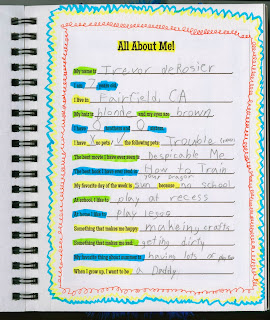 All About Me!
My name is Trevor deRosier
I am 7 years old
I live in Fairfield, CA
My hair is blonde and my eyes are brown
I have brothers and sisters.
I have no pets / the following pets: Trouble
The best movie I have ever seen is Despicable Me
The best book I have ever read is How to Train
your Dragon
My favorite day of the week is sun because no school
At school I like to play at recess
At home I like to play legos
Something that makes me happy makeing crafts
Something that makes me feel geting dirty
My favorite thing about summer is having lots of
When I grow up, I want to be a Daddy